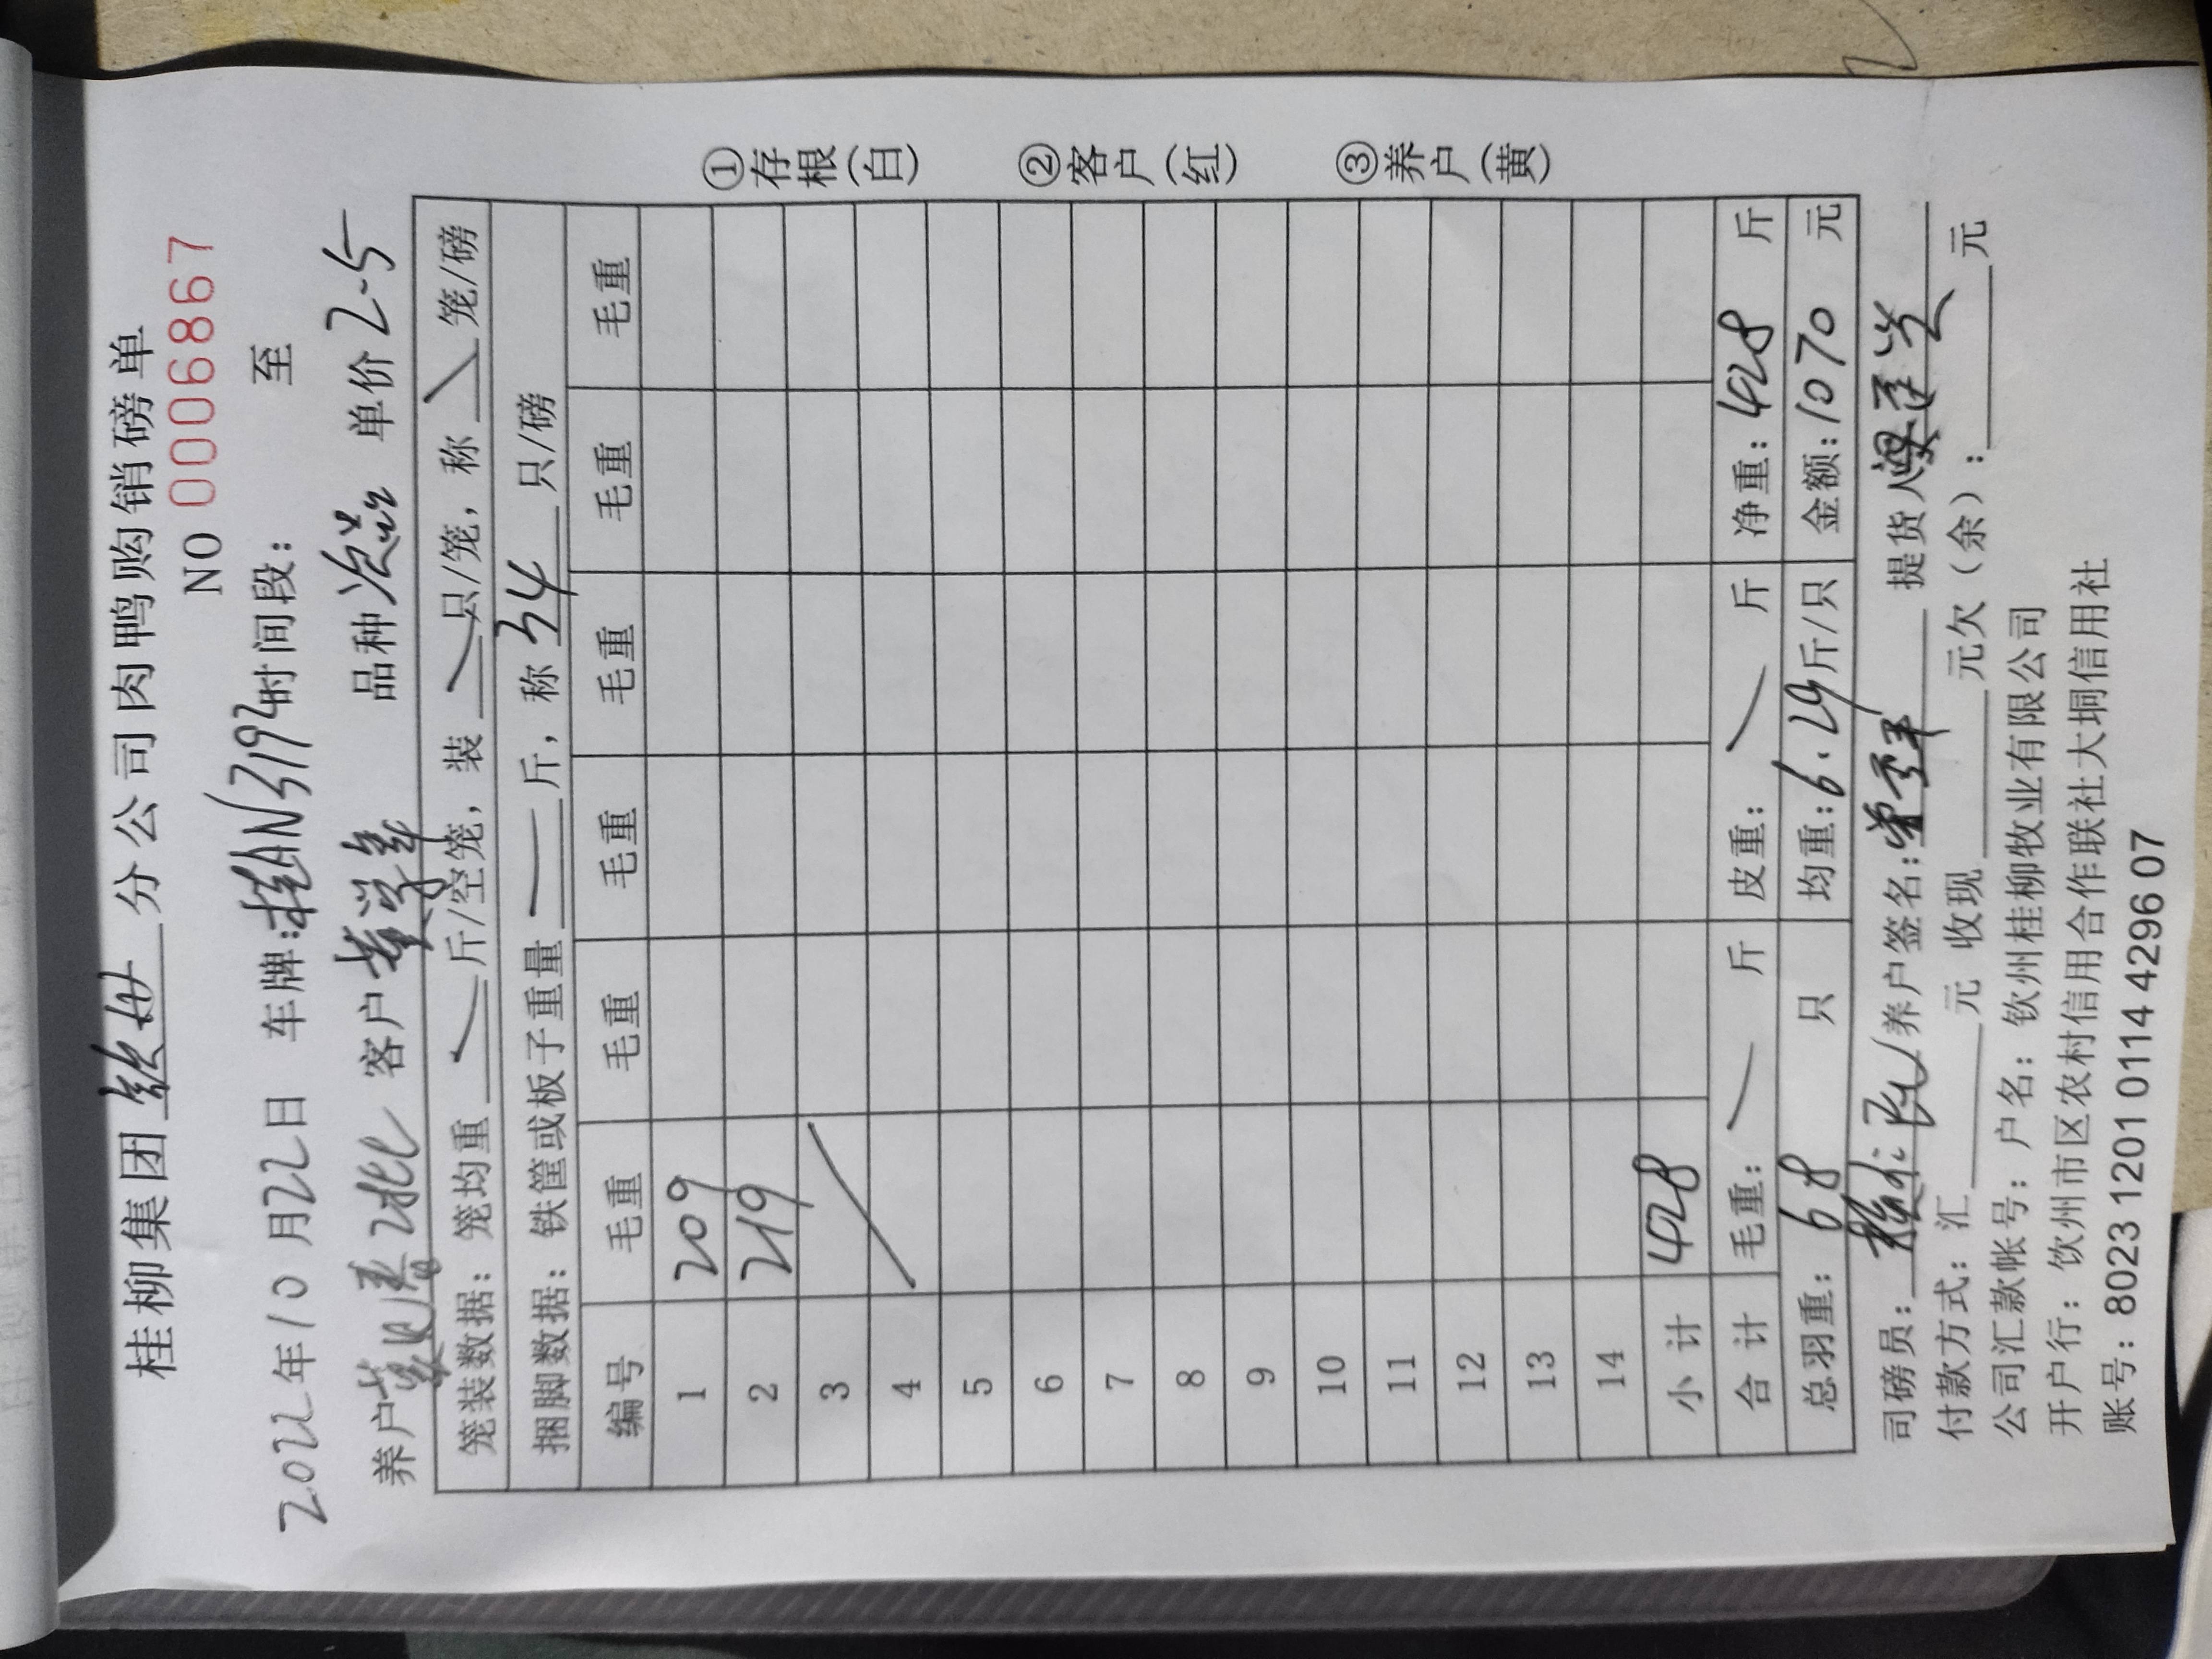 桂柳集团 钦州 分公司肉鸭购销磅单
NO 0006867
2022年10月22日 车牌:桂AN3192时间段: 至
养户 客户 品种 单价2-5
笼装数据:笼均重 斤/空笼,装 只/笼,称 笼/磅
捆脚数据:铁筐或板子重量 斤,称34只/磅
编号 毛重 毛重 毛重 毛重 毛重 毛重
1 209
2 219
3
4
5
6
7
8
9
10
11
12
13
14
小 计 428
合 计 毛重: 斤 皮重: 斤 净重:428 斤
总羽重: 68 只 均重:6.29斤/只 金额:1070 元
司磅员: 养户签名: 提货人
付款方式:汇 元 收现 元欠(余): 元
公司汇款帐号:户名:钦州桂柳牧业有限公司
开户行:钦州市区农村信用合作联社大垌信用社
账号:8023 1201 0114 4296 07
①存根(白) ②客户(红) ③养户(黄)